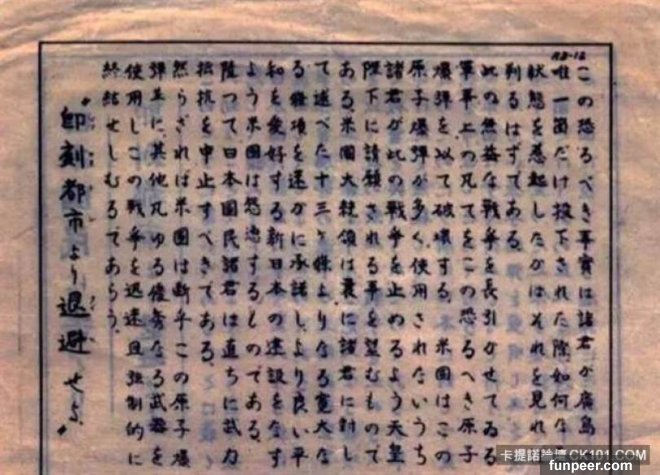 AB-12
この恐るべき事実は諸君が広島に
唯一箇だけ投下された際如何なる
状態を惹起したかはそれを見れば
判るはずである
此の無益な戦争を長引かせてゐる
軍事上の凡てをこの恐るべき原子
爆弾を以て破壊する、米国はこの
原子爆弾が多く使用されないうち
諸君が此の戦争を止めるよう天皇
陛下に請願される事を望むもので
ある、米国大統領は曩に諸君に対し
て述べた十三ヶ條よりなる寛大な
る條項を速かに承諾しより良い平
和を愛好する新日本の建設をなす
よう米国は慫慂するものである、
従つて日本国民諸君は直ちに武力
抵抗を中止すべきである、
然らざれば米国は断乎この原子爆
弾並に其他凡ゆる優秀なる武器を
使用しこの戦争を迅速且強制的に
終結せしむるであらう、
"即刻都市より退避せよ"
卡提諾論壇CK101.COM
funpeer.com